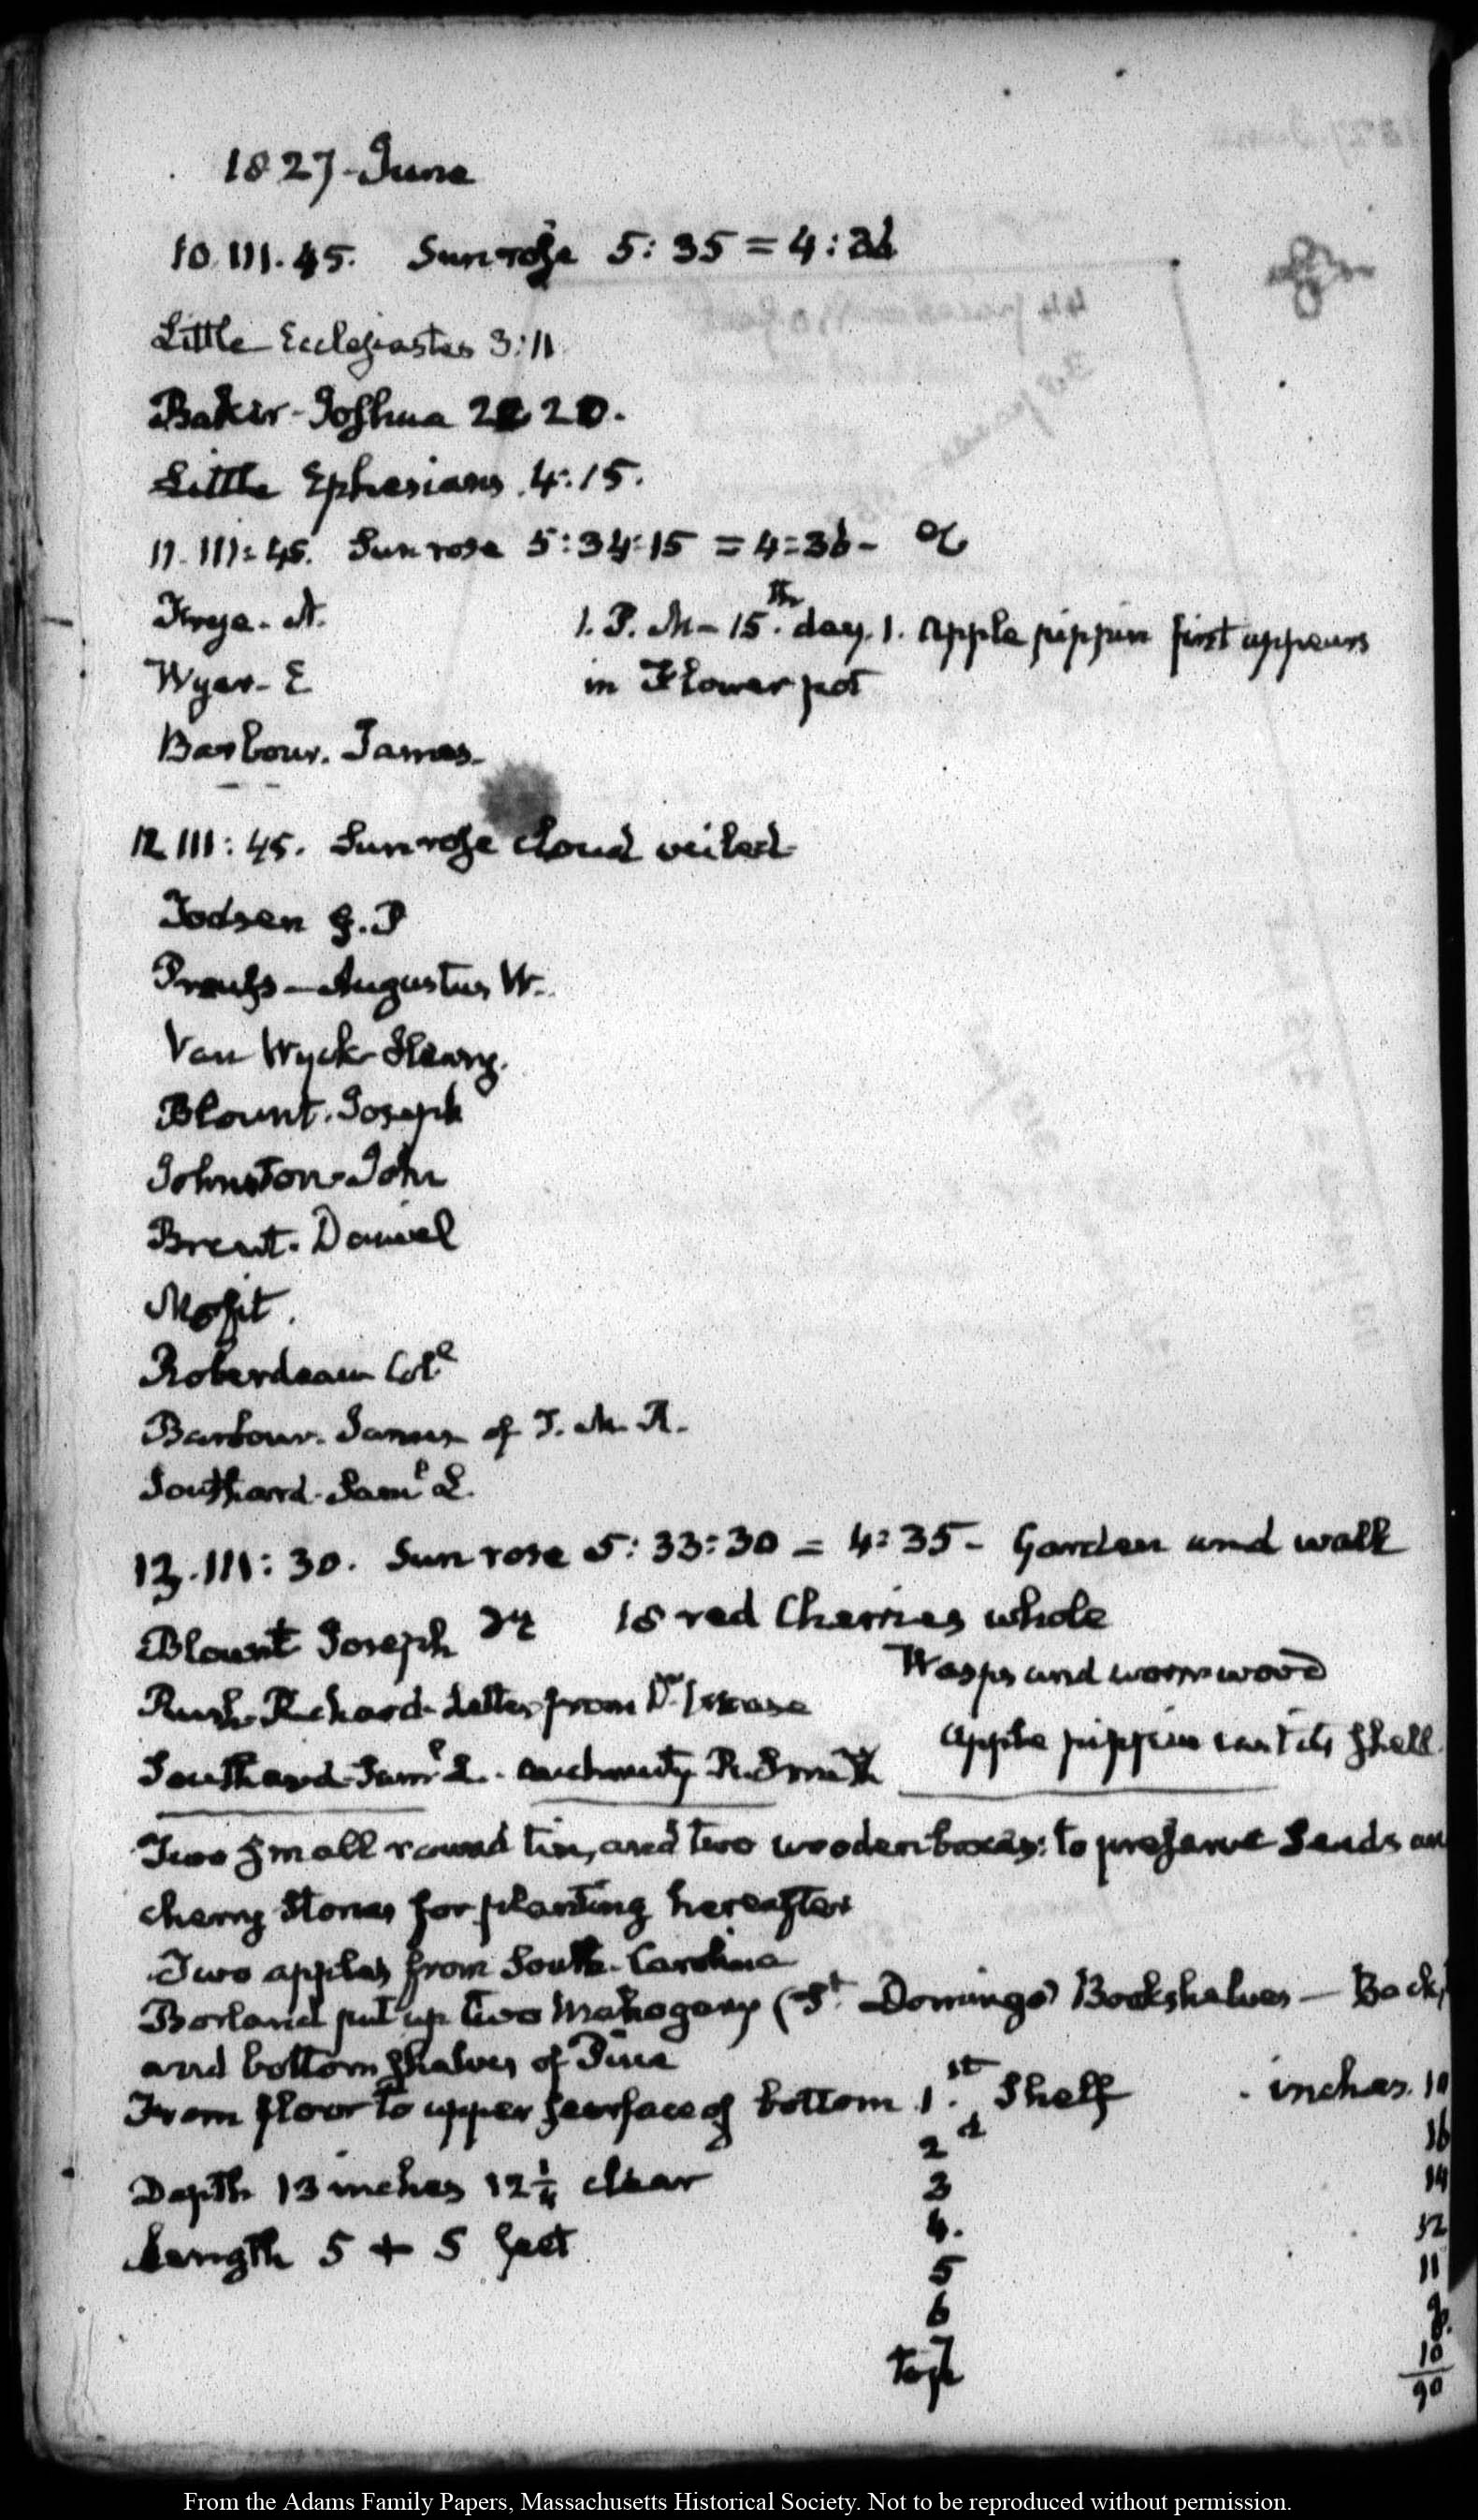 1827. June
10. III. 45. Sun rose 5:35 = 4:36
Little Ecclesiastes 3:11
Baker. Joshua 24 20.
Little Ephesians. 4:15.
11. III: 45. Sun rose 5:34:15 = 4:36 -
Frye. N. 1. P. M - 15.th day. 1. Apple pippin first appears
Wyer. E in Flower pot
Barbour. James.
12 III: 45. Sun rose cloud veiled
Todsen G. P
Preuss - Augustus W.
Van Wyck Henry.
Blount. Joseph
Johnston John
Brent. Daniel
Mosfit.
Roberdeau Coll
Barbour. James of T. M. R.
Southard. Saml L.
13. III: 30. Sun rose 5:33:30 = 4:35 - Garden and walk
Blount Joseph 18 red Cherries whole
Wasps and wormwood
Rush. Richard. Letter from Dr
Apple pippin cast its shell
Southard Saml L. R. Smith
Two small round tin, and two wooden boxes: to preserve seeds an
cherry stones for planting hereafter
Two apples from South-Carolina
Borland put up two Mahogany (St. Domingo) Bookshelves — Back,
and bottom shelves of Pine
From floor to upper surface of bottom 1.st Shelf . inches. 10
2d 16
Depth 13 inches 12 1/4 clear 3 14
4. 12
Length 5 + 5 feet 5 11
6 9
7 8.
top 10
90
From the Adams Family Papers, Massachusetts Historical Society. Not to be reproduced without permission.